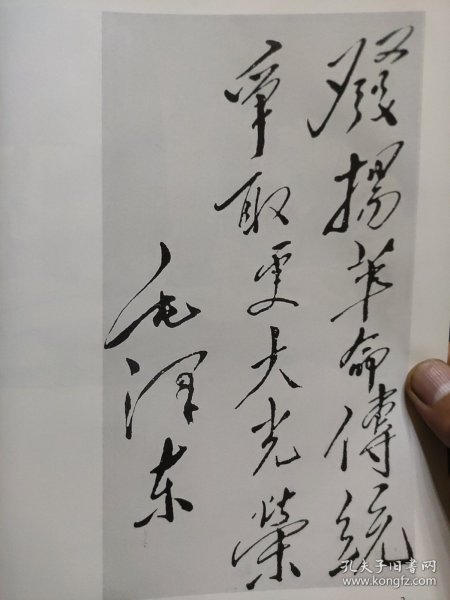 發揚革命傳統
爭取更大光榮
毛泽东
孔夫子旧书网
www.kongfz.com